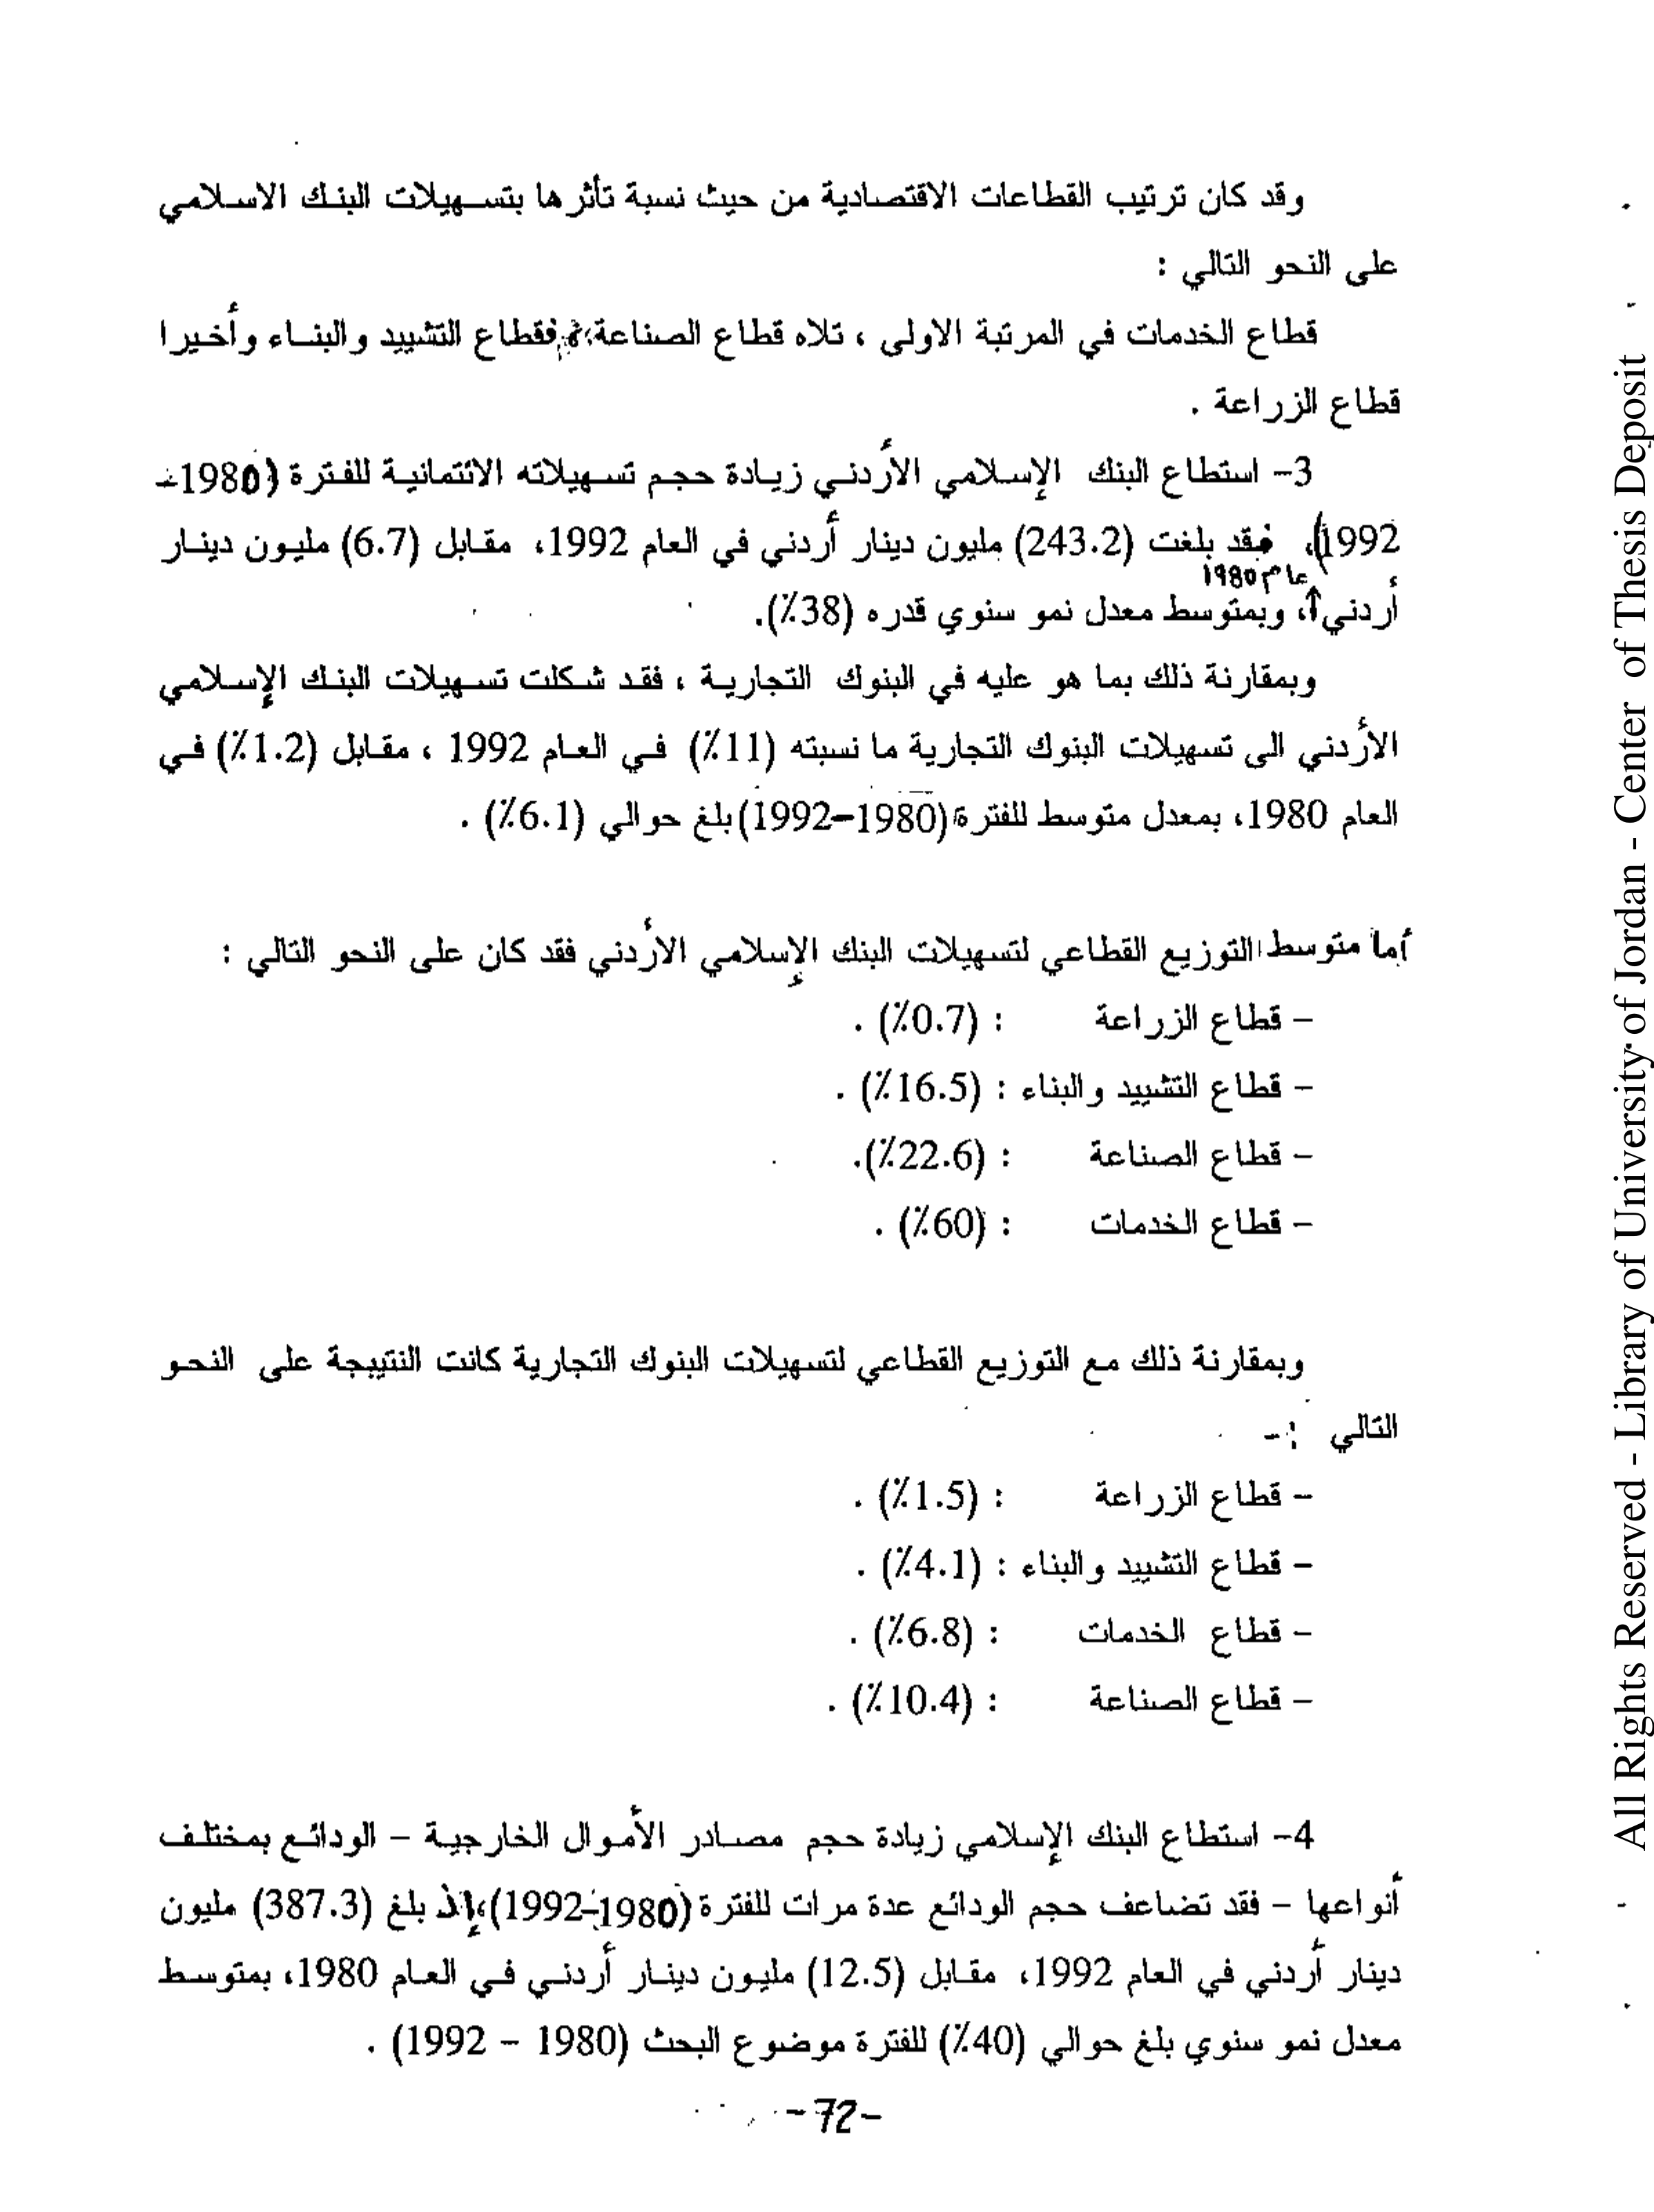 وقد كان ترتيب القطاعات الاقتصادية من حيث نسبة تأثرها بتسهيلات البنك الاسلامي
على النحو التالي :
قطاع الخدمات في المرتبة الاولى ، تلاه قطاع الصناعة، فقطاع التشييد والبناء وأخيرا
قطاع الزراعة .
3- استطاع البنك الإسلامي الأردني زيادة حجم تسهيلاته الائتمانية للفترة (1980-
1992)، فقد بلغت (243.2) مليون دينار أردني في العام 1992، مقابل (6.7) مليون دينار
عام 1980
أردني، وبمتوسط معدل نمو سنوي قدره (38٪).
وبمقارنة ذلك بما هو عليه في البنوك التجارية ، فقد شكلت تسهيلات البنك الإسلامي
الأردني الى تسهيلات البنوك التجارية ما نسبته (11٪) في العام 1992 ، مقابل (1.2٪) في
العام 1980، بمعدل متوسط للفترة (1980-1992) بلغ حوالي (6.1٪) .
أما متوسط التوزيع القطاعي لتسهيلات البنك الإسلامي الأردني فقد كان على النحو التالي :
- قطاع الزراعة : (0.7٪) .
- قطاع التشييد والبناء : (16.5٪) .
- قطاع الصناعة : (22.6٪).
- قطاع الخدمات : (60٪) .
وبمقارنة ذلك مع التوزيع القطاعي لتسهيلات البنوك التجارية كانت النتيجة على النحو
التالي :-
- قطاع الزراعة : (1.5٪) .
- قطاع التشييد والبناء : (4.1٪) .
- قطاع الخدمات : (6.8٪) .
- قطاع الصناعة : (10.4٪) .
4- استطاع البنك الإسلامي زيادة حجم مصادر الأموال الخارجية - الودائع بمختلف
أنواعها - فقد تضاعف حجم الودائع عدة مرات للفترة (1980-1992)، إذ بلغ (387.3) مليون
دينار أردني في العام 1992، مقابل (12.5) مليون دينار أردني في العام 1980، بمتوسط
معدل نمو سنوي بلغ حوالي (40٪) للفترة موضوع البحث (1980 - 1992) .
-72-
All Rights Reserved - Library of University of Jordan - Center of Thesis Deposit